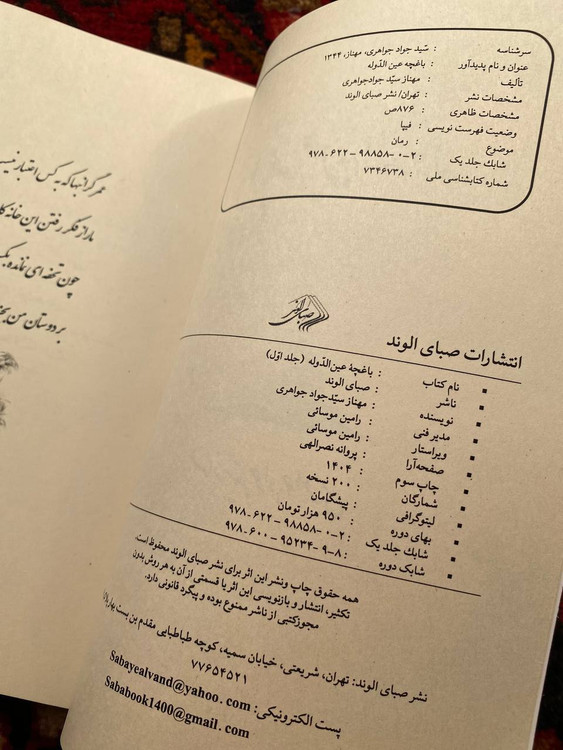 سرشناسه : سّید جواد جواهری، مهناز، ۱۳۴۴
عنوان و نام پدیدآور : باغچه عین الدّوله
تألیف : مهناز سیّد جوادجواهری
مشخصات نشر : تهران/ نشر صبای الوند
مشخصات ظاهری : ۸۷۶ص
وضعیت فهرست نویسی : فیپا
موضوع : رمان
شابك جلد یک : ۲-۰-۹۸۸۵۸-۶۲۲-۹۷۸
شماره کتابشناسی ملی : ۷۳۴۶۷۳۸
صبای الوند
انتشارات صبای الوند
▪ نام کتاب : باغچۀ عین‌الدّوله (جلد اوّل)
▪ ناشر : صبای الوند
▪ نویسنده : مهناز سیّدجواد جواهری
▪ مدیر فنی : رامین موسائی
▪ ویراستار : رامین موسائی
▪ صفحه‌آرا : پروانه نصرالهی
▪ چاپ سوم : ۱۴۰۴
▪ شمارگان : ۲۰۰ نسخه
▪ لیتوگرافی : پیشگامان
▪ بهای دوره : ۹۵۰ هزار تومان
▪ شابك جلد یک : ۲-۰-۹۸۸۵۸-۶۲۲-۹۷۸
▪ شابک دوره : ۸-۹-۹۵۲۳۴-۶۰۰-۹۷۸
همه حقوق چاپ ونشر این اثر برای نشر صبای الوند محفوظ است.
تکثیر، انتشار و بازنویسی این اثر یا قسمتی از آن به هر روش بدون
مجوزکتبی از ناشر ممنوع بوده و پیگرد قانونی دارد.
نشر صبای الوند: تهران، شریعتی، خیابان سمیه، کوچه طباطبایی مقدم بن بست بهار پلاک
۷۷۶۵۴۵۲۱
پست الکترونیکی: Sabayealvand@yahoo.com
Sababook1400@gmail.com
عمر گرانبها که به کس اعتبار
ما را ز فکر رفتن این خانه
چون تخته ای نمانده
بر دوستان من